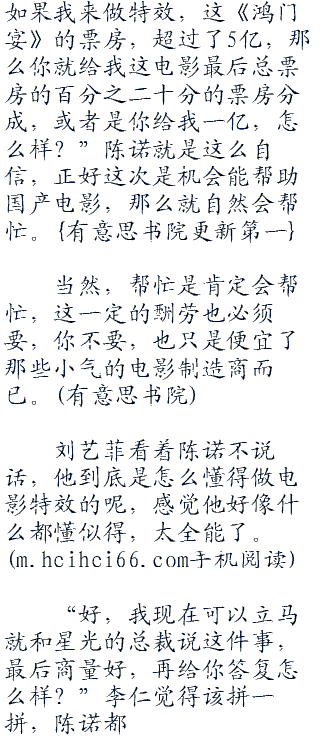 如果我来做特效，这《鸿门
宴》的票房，超过了5亿，那
么你就给我这电影最后总票
房的百分之二十分的票房分
成，或者是你给我一亿，怎
么样？”陈诺就是这么自
信，正好这次是机会能帮助
国产电影，那么就自然会帮
忙。{有意思书院更新第一}
当然，帮忙是肯定会帮
忙，这一定的酬劳也必须
要，你不要，也只是便宜了
那些小气的电影制造商而
已。(有意思书院)
刘艺菲看着陈诺不说
话，他到底是怎么懂得做电
影特效的呢，感觉他好像什
么都懂似得，太全能了。
(m.hcihci66.com手机阅读)
“好，我现在可以立马
就和星光的总裁说这件事，
最后商量好，再给你答复怎
么样？”李仁觉得该拼一
拼，陈诺都